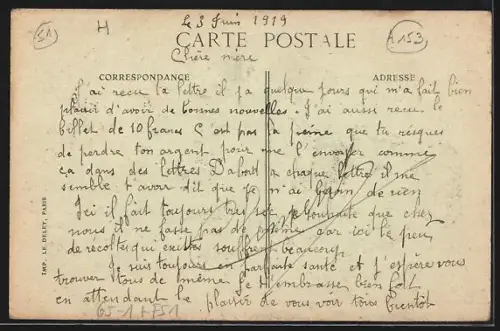 51
H
Le 3 Juin 1919
A 153
CARTE POSTALE
Chère mère
CORRESPONDANCE
ADRESSE
J'ai recu ta lettre il ya quelque jours qui m'a fait bien
plaisir d'avoir de bonnes nouvelles. J'ai aussi recu le
billet de 10 francs C'est pas la peine que tu risques
de perdre ton argent pour me l'envoyer comme
ça dans des lettres D'abord a chaque lettre il me
semble t'avoir dit que je n'ai besoin de rien
Ici il fait toujours tres sec je souhaite que chez
nous il ne fasse pas de même car ici le peu
de recoltes qui existes souffrent beaucoup
Je suis toujours en parfaite santé et j'espère vous
trouver tous de même Je t'embrasse bien fort
en attendant le plaisir de vous voir tous bientôt
IMP. LE DELEY, PARIS